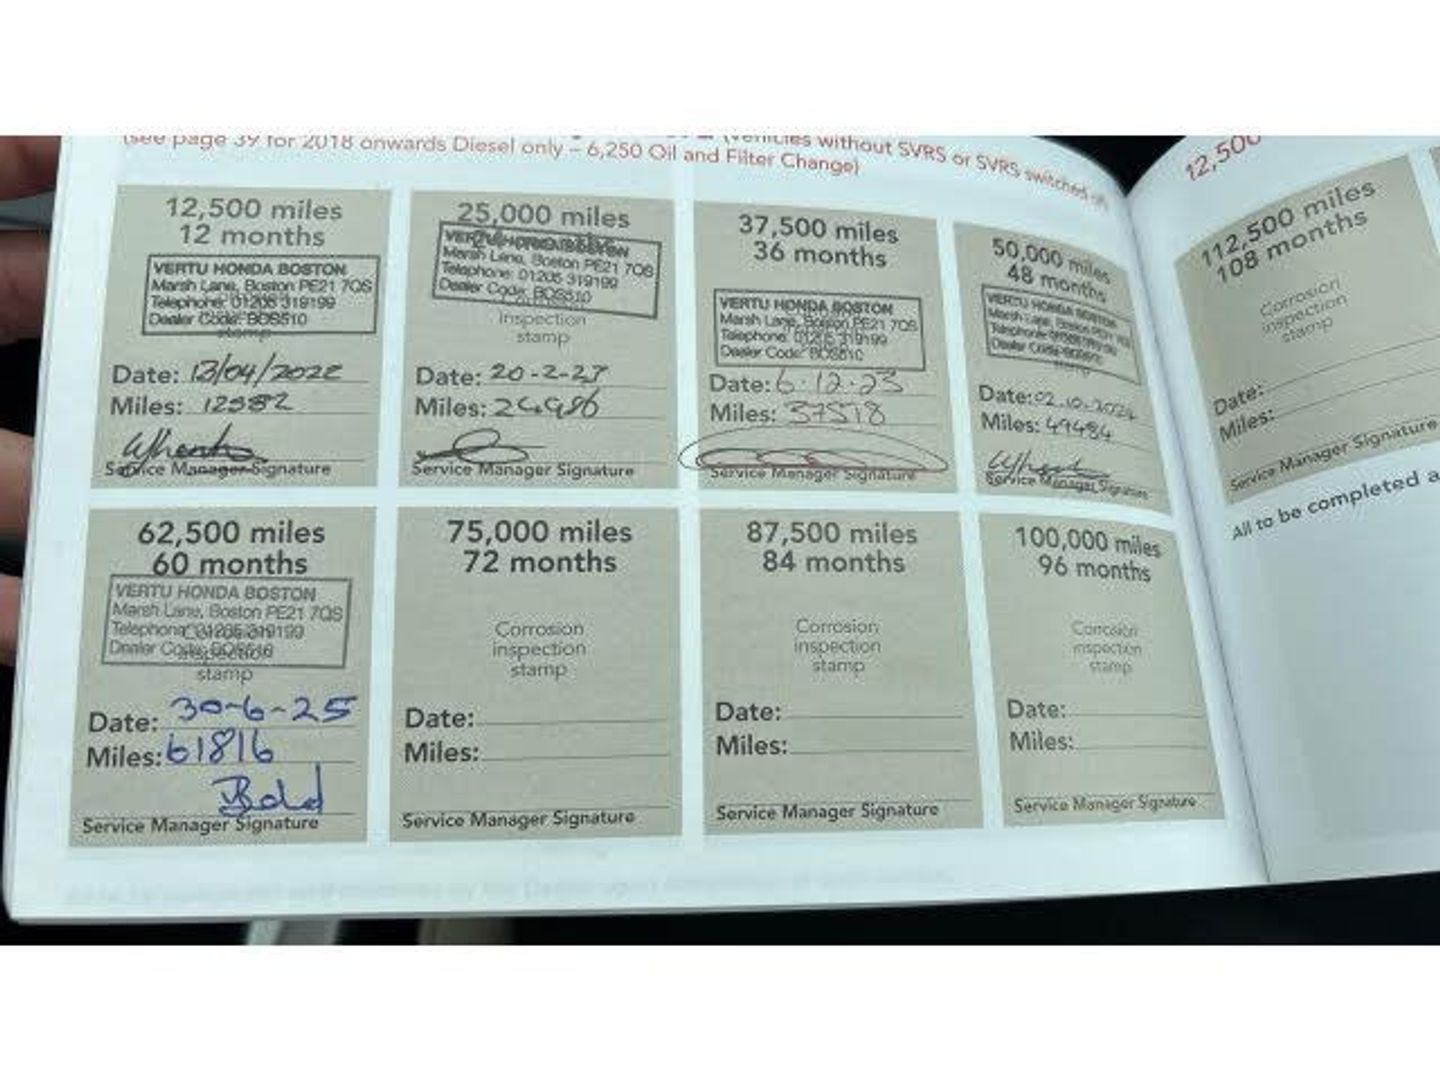 (see page 39 for 2018 onwards Diesel only – 6,250 Oil and Filter Change)
(vehicles without SVRS or SVRS switched off)
12,500 miles
12 months
VERTU HONDA BOSTON
Marsh Lane, Boston PE21 7QS
Telephone: 01205 319199
Dealer Code: BOS510
stamp
Date: 13/04/2022
Miles: 12582
Service Manager Signature
25,000 miles
VERTU HONDA BOSTON
Marsh Lane, Boston PE21 7QS
Telephone: 01205 319199
Dealer Code: BOS510
inspection
stamp
Date: 20-2-23
Miles: 24986
Service Manager Signature
37,500 miles
36 months
VERTU HONDA BOSTON
Marsh Lane, Boston PE21 7QS
Telephone: 01205 319199
Dealer Code: BOS510
Date: 6.12.23
Miles: 37518
Service Manager Signature
50,000 miles
48 months
VERTU HONDA BOSTON
Marsh Lane, Boston PE21 7QS
Telephone: 01205 319199
Dealer Code: BOS510
stamp
Date: 02.10.2024
Miles: 49484
Service Manager Signature
62,500 miles
60 months
VERTU HONDA BOSTON
Marsh Lane, Boston PE21 7QS
Telephone: 01205 319199
Dealer Code: BOS510
inspection
stamp
Date: 30-6-25
Miles: 61816
Service Manager Signature
75,000 miles
72 months
Corrosion
inspection
stamp
Date:
Miles:
Service Manager Signature
87,500 miles
84 months
Corrosion
inspection
stamp
Date:
Miles:
Service Manager Signature
100,000 miles
96 months
Corrosion
inspection
stamp
Date:
Miles:
Service Manager Signature
12,500
112,500 miles
108 months
Corrosion
inspection
stamp
Date:
Miles:
Service Manager Signature
All to be completed a